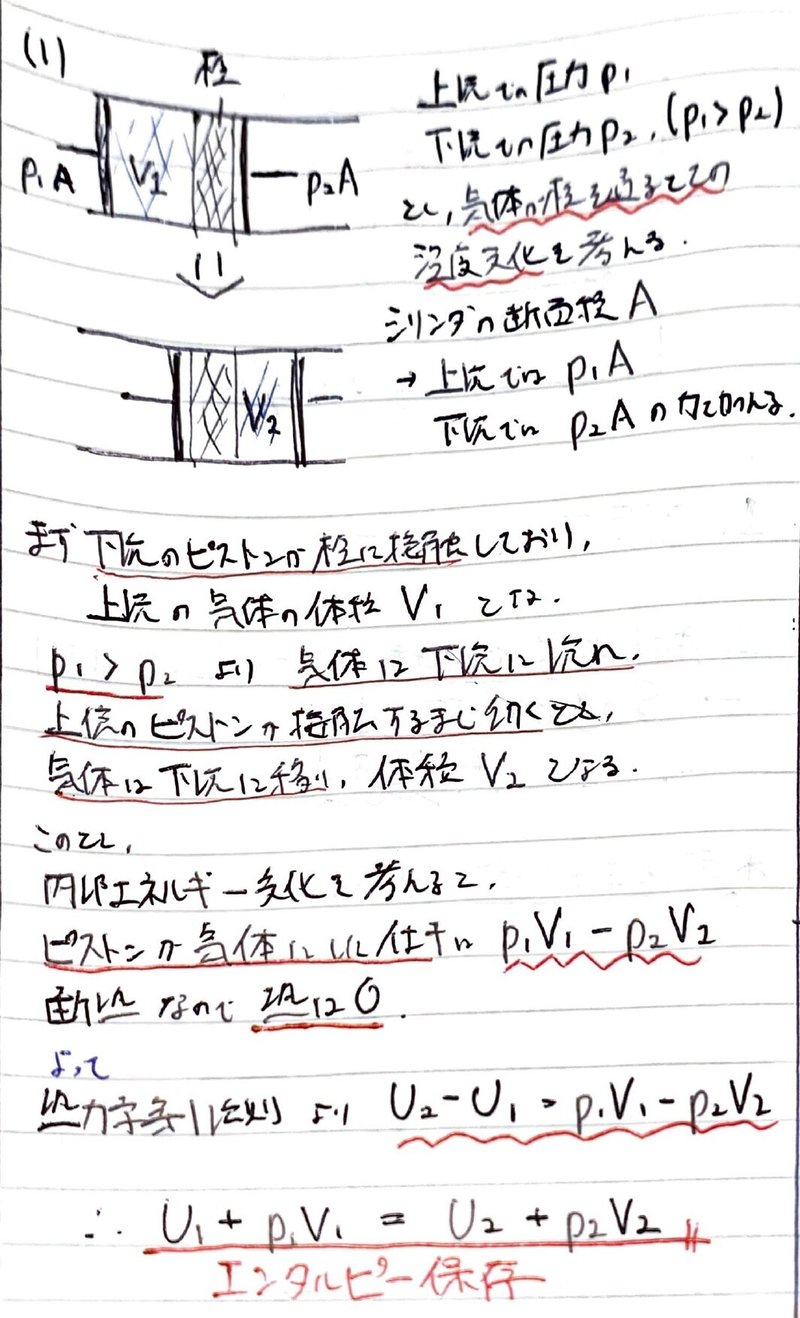 (1)
栓
p₁A
V₁
p₂A
V₂
上流での圧力 p₁
下流での圧力 p₂, (p₁ > p₂)
とし, 気体が栓を通るときの
温度変化を考える.
シリンダの断面積 A
→ 上流では p₁A
下流では p₂A の力を加える.
まず 下流のピストンが栓に接触しており,
上流の気体の体積 V₁ とする.
p₁ > p₂ より 気体は下流に流れ,
上流のピストンが接触するまで動くとき,
気体は下流に移り, 体積 V₂ となる.
このとき,
内部エネルギー変化を考えると,
ピストンが気体にした仕事は p₁V₁ − p₂V₂
断熱なので 熱は 0.
よって
熱力学第1法則より U₂ − U₁ = p₁V₁ − p₂V₂
∴ U₁ + p₁V₁ = U₂ + p₂V₂
エンタルピー保存